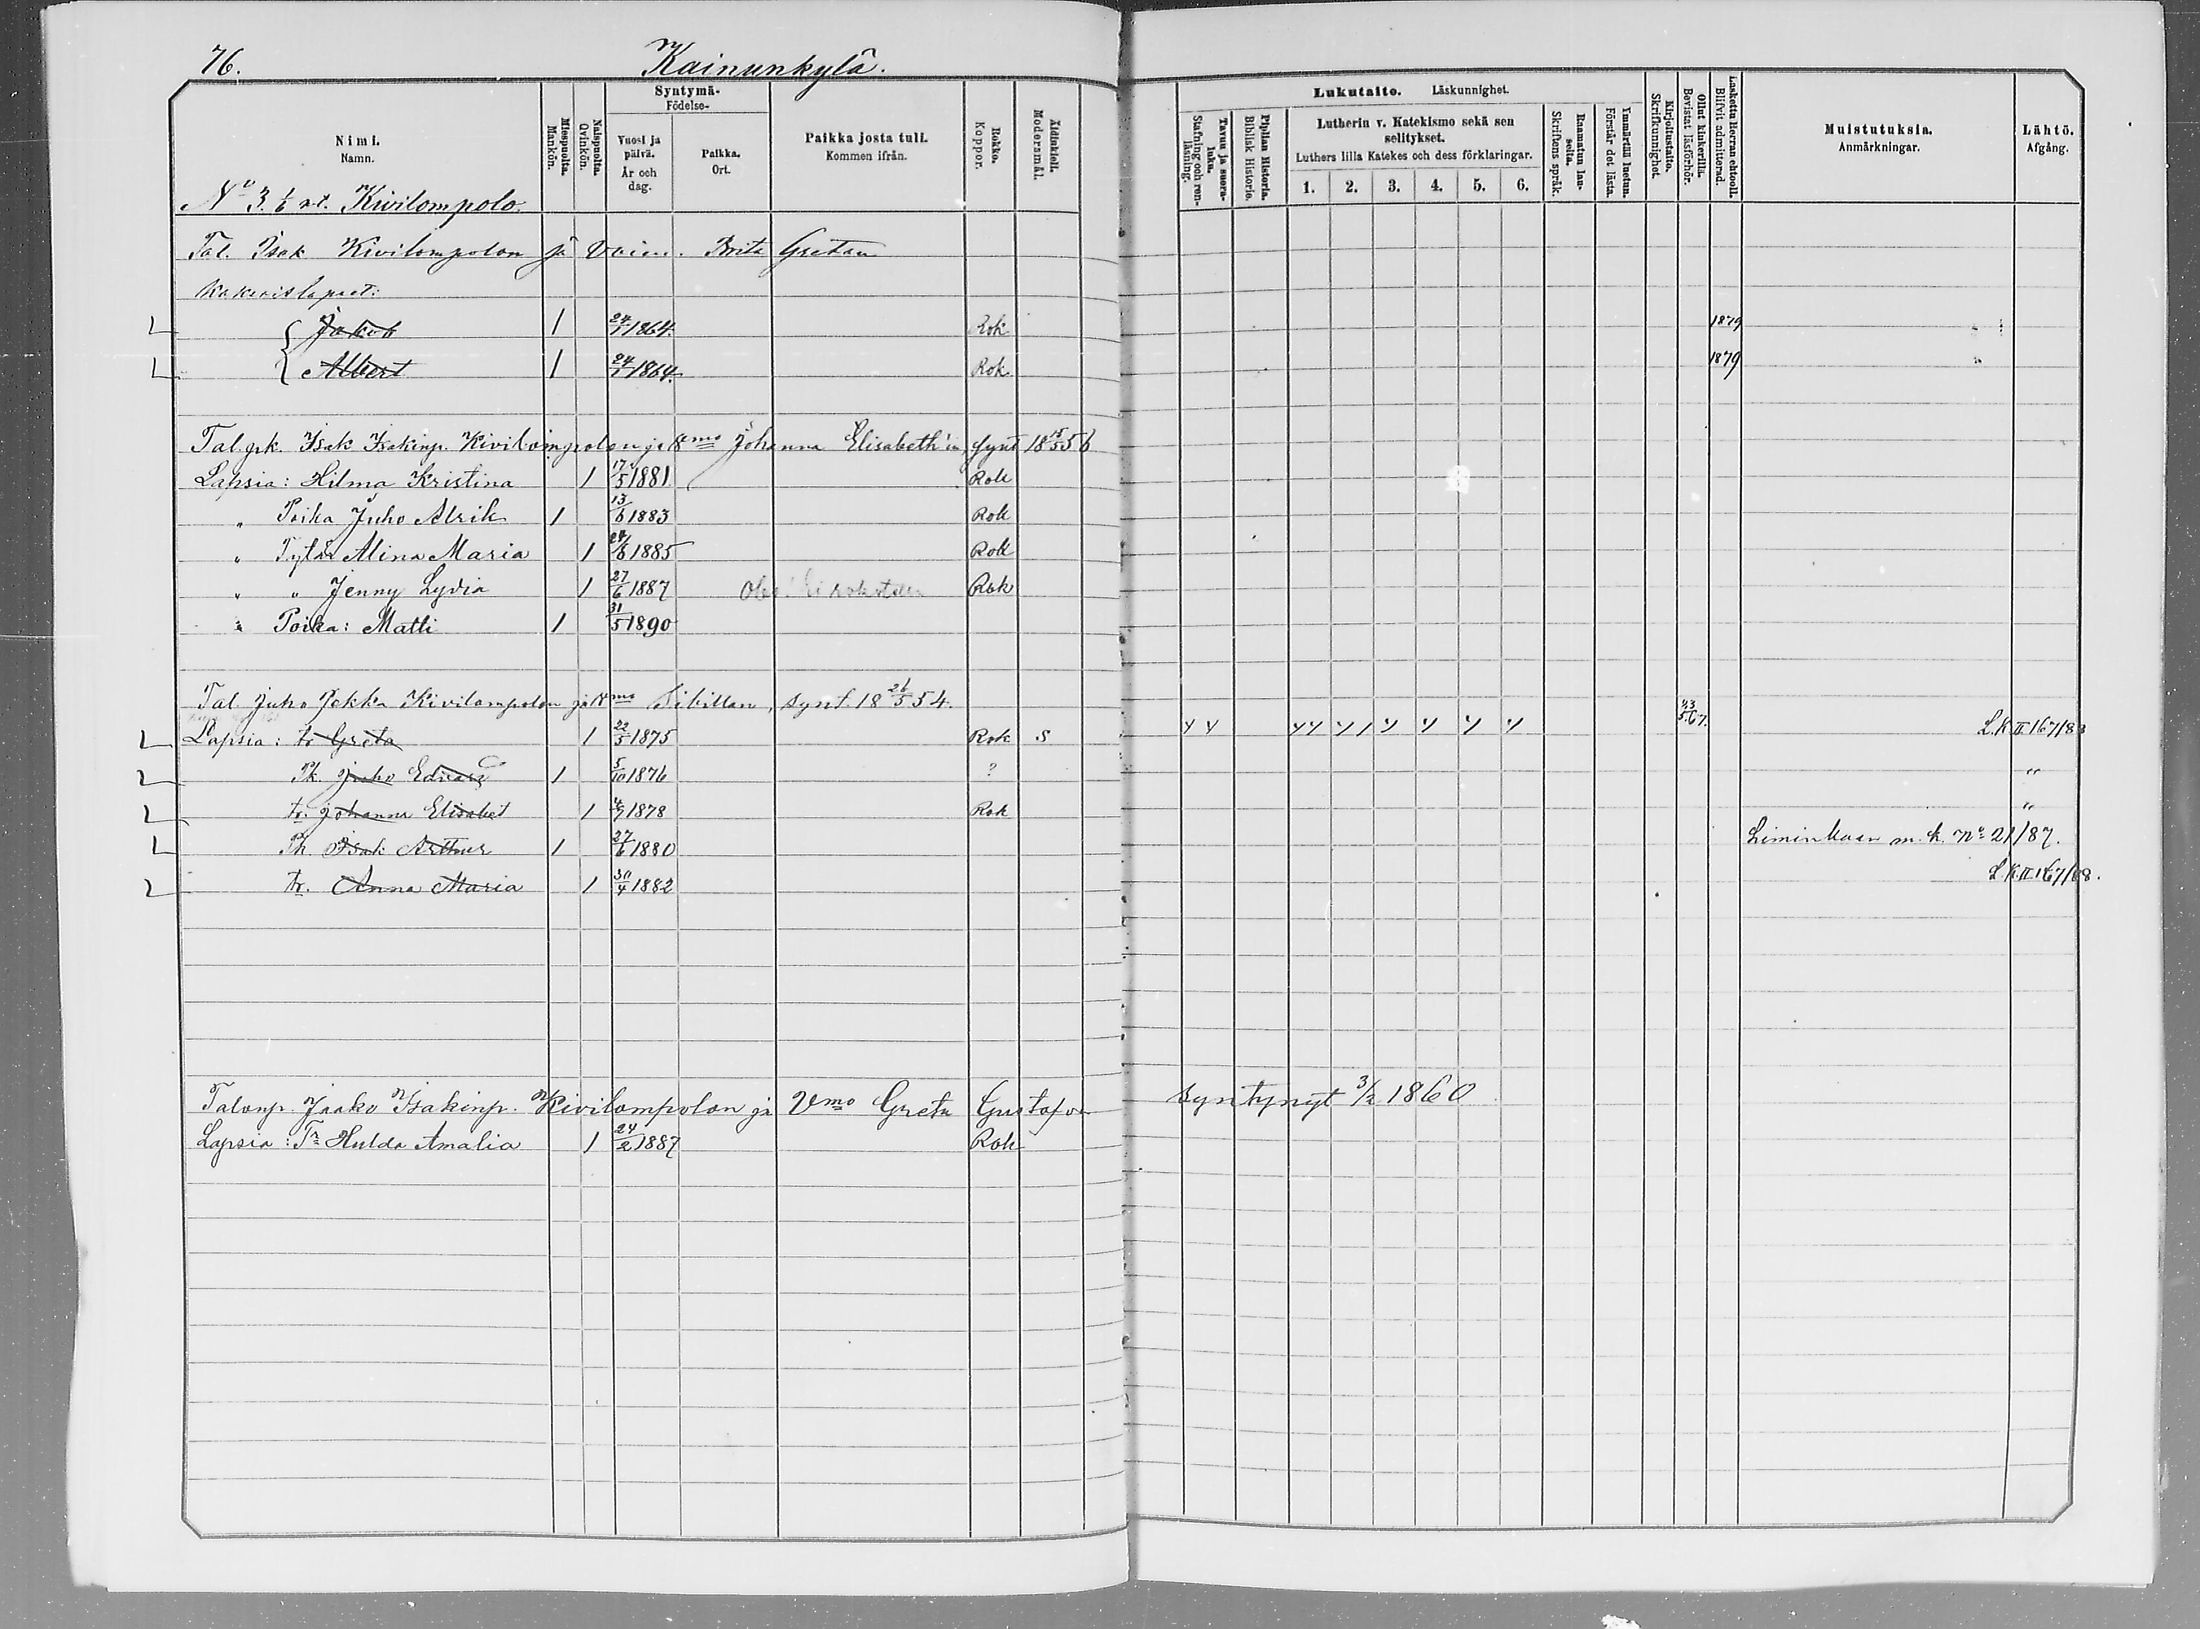 76. Kainunkylä.
Nimi. Namn. Miespuolia. Mankön. Naispuolia. Qvinkön. Syntymä- Födelse- Vuosi ja päivä. År och dag. Paikka. Ort. Paikka josta tuli. Kommen ifrån. Rokko. Koppor. Äidinkieli. Modersmål. Lukutaito. Läskunnighet. Tavuu ja suora-luku. Stafning och ren-läsning. Piplian Historia. Biblisk Historie. Lutherin v. Katekismo sekä sen selitykset. Luthers lilla Katekes och dess förklaringar. 1. 2. 3. 4. 5. 6. Raamatun lau-seita. Skriftens språk. Ymmärtää luetun. Förstår det lästa. Kirjoitustaito. Skrifkunnighet. Ollut kinkerillä. Bevistat läsförhör. Laskettu Herran ehtooll. Blifvit admitterad. Muistutuksia. Anmärkningar. Lähtö. Afgång.
No 3. 1/6 mt. Kivilompolo.
Tal. Isak Kivilompolon ja Brita Gretan
lapset:
Jakob 1 24/1 1864. Rok 1879
Albert 1 24/1 1864. Rok 1879
Tal. pk. Isak Isakinp. Kivilompolon ja Vmo Johanna Elisabeth'in, synt 18 15/5 56
Lapsia: Hilma Kristina 1 17/5 1881 Rok
„ Poika Juho Alrik 1 13/6 1883 Rok
„ Tytär Alina Maria 1 24/8 1885 Rok
„ „ Jenny Lydia 1 27/6 1887 Rok
„ Poika: Matti 1 31/5 1890
Tal. Juho Pekka Kivilompolon ja Vmo Sibillan, synt. 18 26/5 54.
Lapsia: tr Greta 1 22/3 1875 Rok S y y y y y 1 y y y y L.K.II 167/88
Pk. Juho Edvard 1 5/10 1876 ? „
tr. Johanna Elisabet 1 4/9 1878 Rok „
Pk. Isak Arthur 1 27/6 1880 Liminkaan m. k. No 21/87.
tr. Anna Maria 1 30/4 1882 L.K.II 167/88.
Talonp. Jaako Isakinp. Kivilompolon ja Vmo Greta Gustafva syntynyt 3/2 1860
Lapsia: Tr Hulda Amalia 1 24/2 1887 Rok